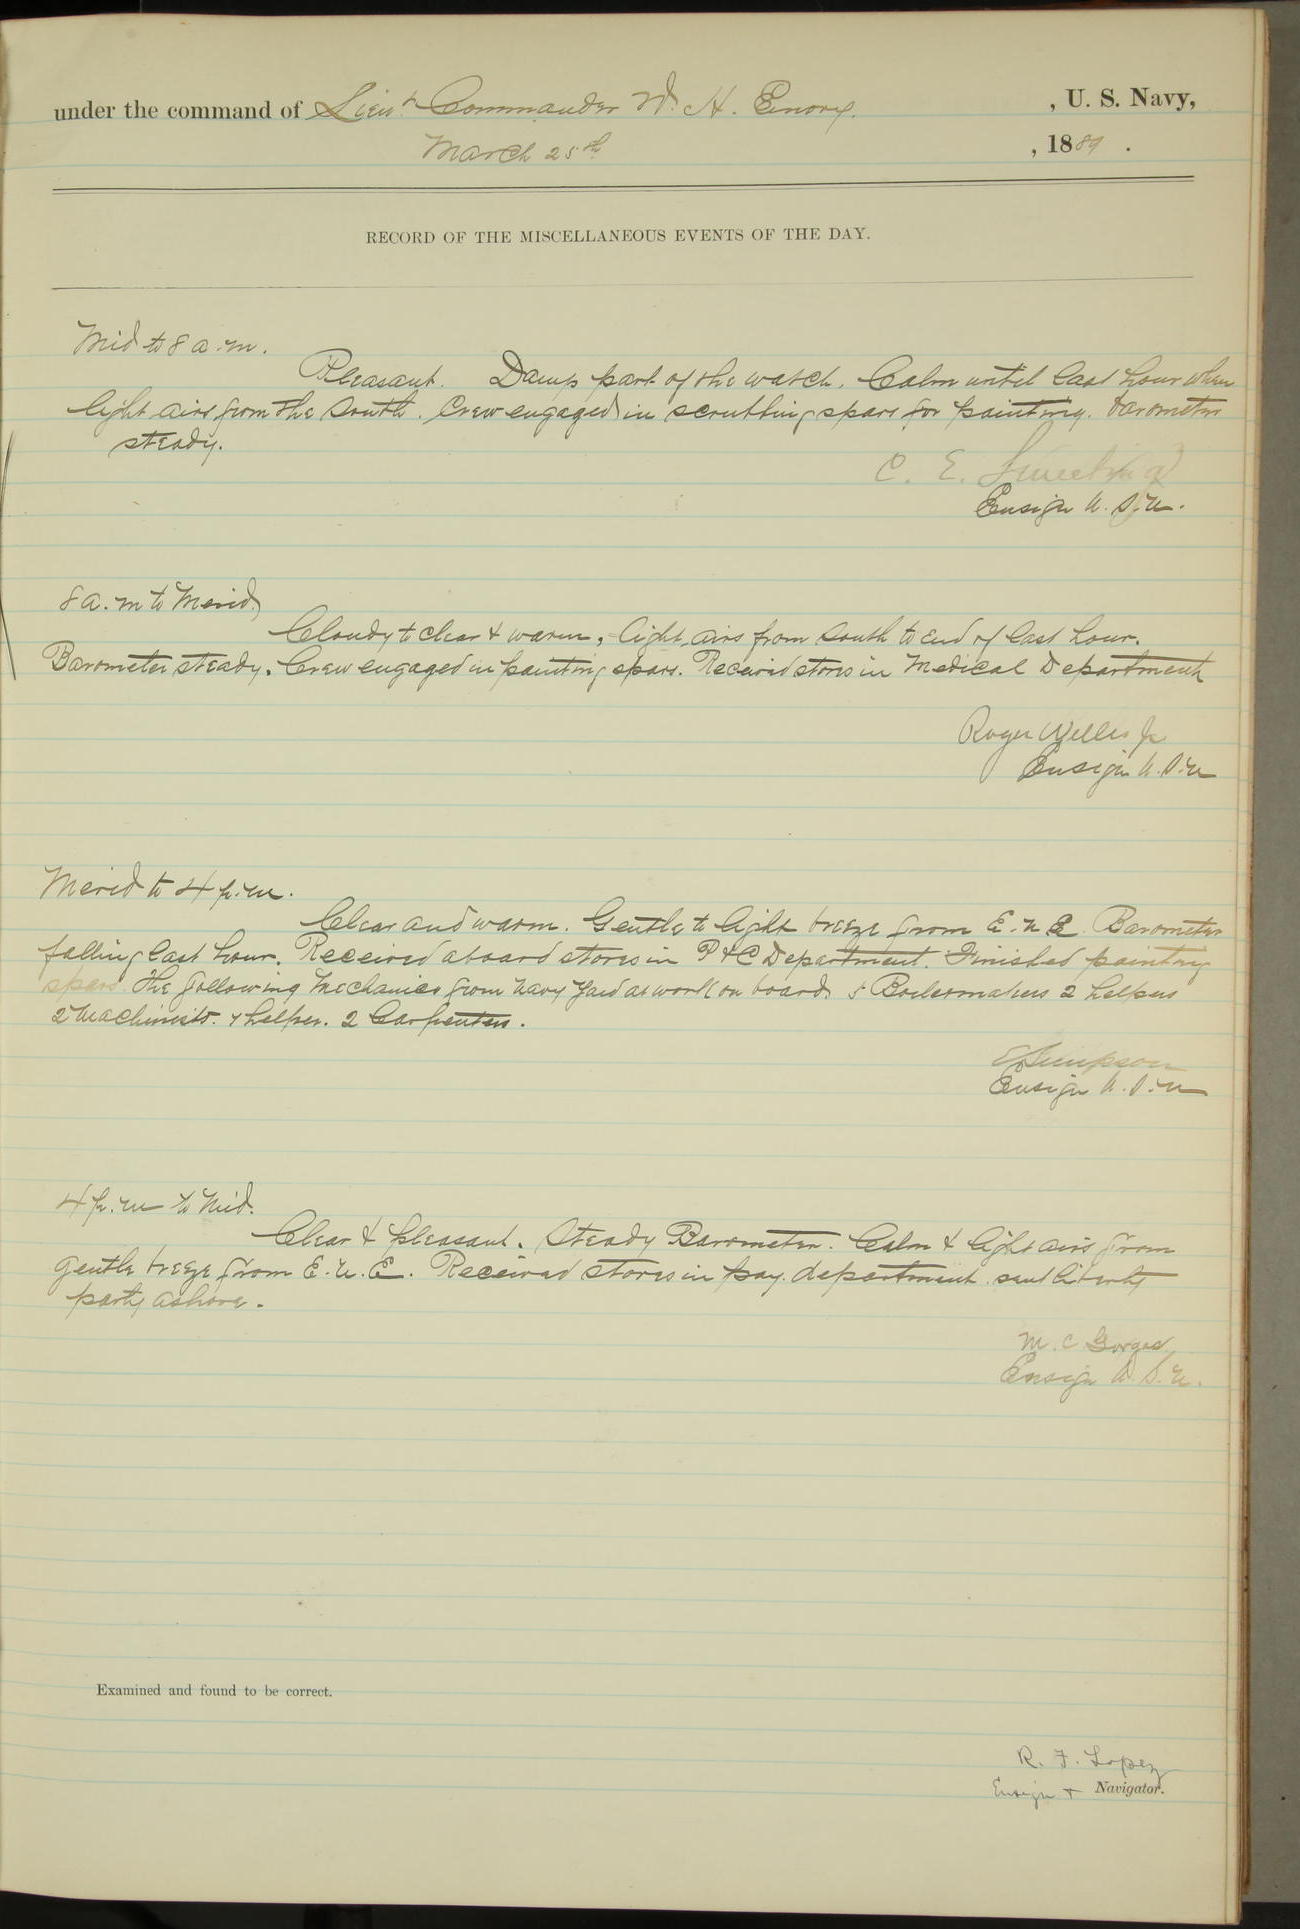 under the command of Lieut Commander W. H. Emory, U. S. Navy,
March 25th, 1889.
RECORD OF THE MISCELLANEOUS EVENTS OF THE DAY.
Mid to 8 a.m.
Pleasant. Damp part of the watch. Calm until last hour when
light airs from the South. Crew engaged in scrubbing spars for painting. barometer
steady.
C. E.
Ensign U.S.N.
8 a.m to Merid,
Cloudy to clear & warm, light airs from South to end of last hour.
Barometer steady. Crew engaged in painting spars. Received stores in Medical Department
Roger Welles Jr
Ensign U.S.N
Merid to 4 p.m.
Clear and warm. Gentle to light breeze from E.N.E. Barometer
falling last hour. Received aboard stores in P & C Department. Finished painting
spars. The following mechanics from Navy Yard at work on board 5 Boilermakers 2 helpers
2 Machinists. helper. 2 Carpenters.
E Simpson
Ensign U.S.N
4 p.m to Mid.
Clear & pleasant. Steady Barometer. Calm & light airs from
gentle breeze from E.N.E. Received stores in pay department sent liberty
party ashore.
M. C. Gorgas
Ensign U.S.N.
Examined and found to be correct.
R. F. Lopez
Ensign & Navigator.